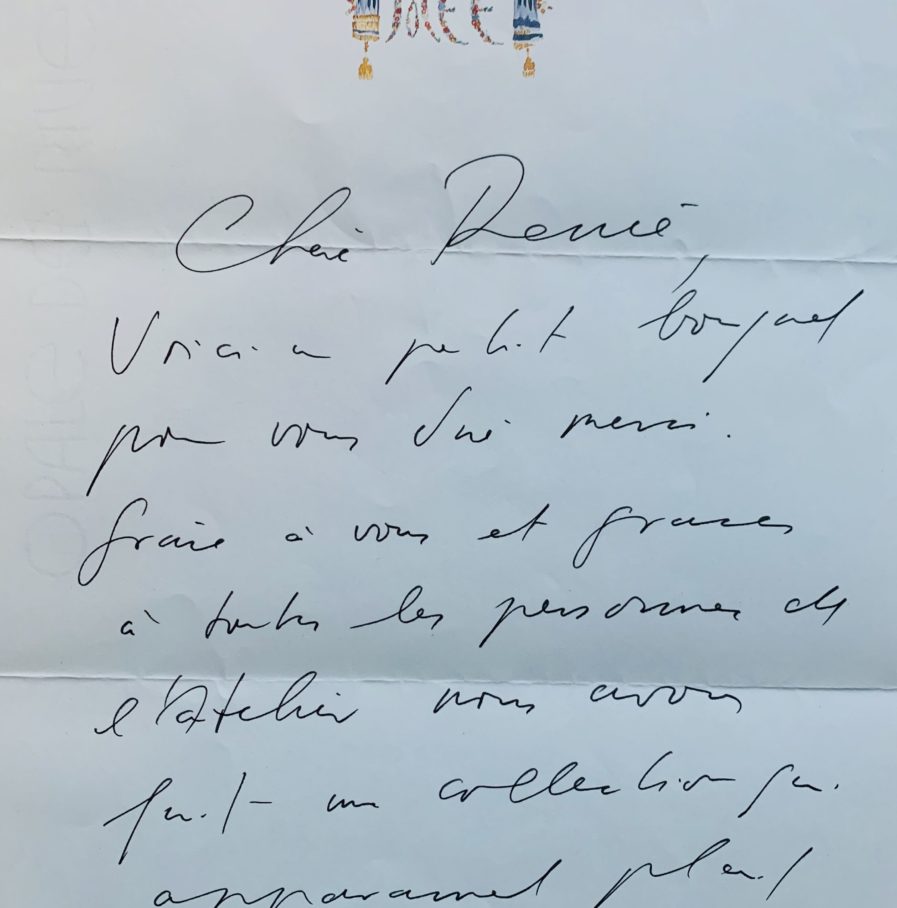 Chère Renée,
Voici un petit bouquet
pour vous dire merci.
Grâce à vous et graces
à toutes les personnes de
l'Atelier nous avons
fait une collection qui
apparament plait